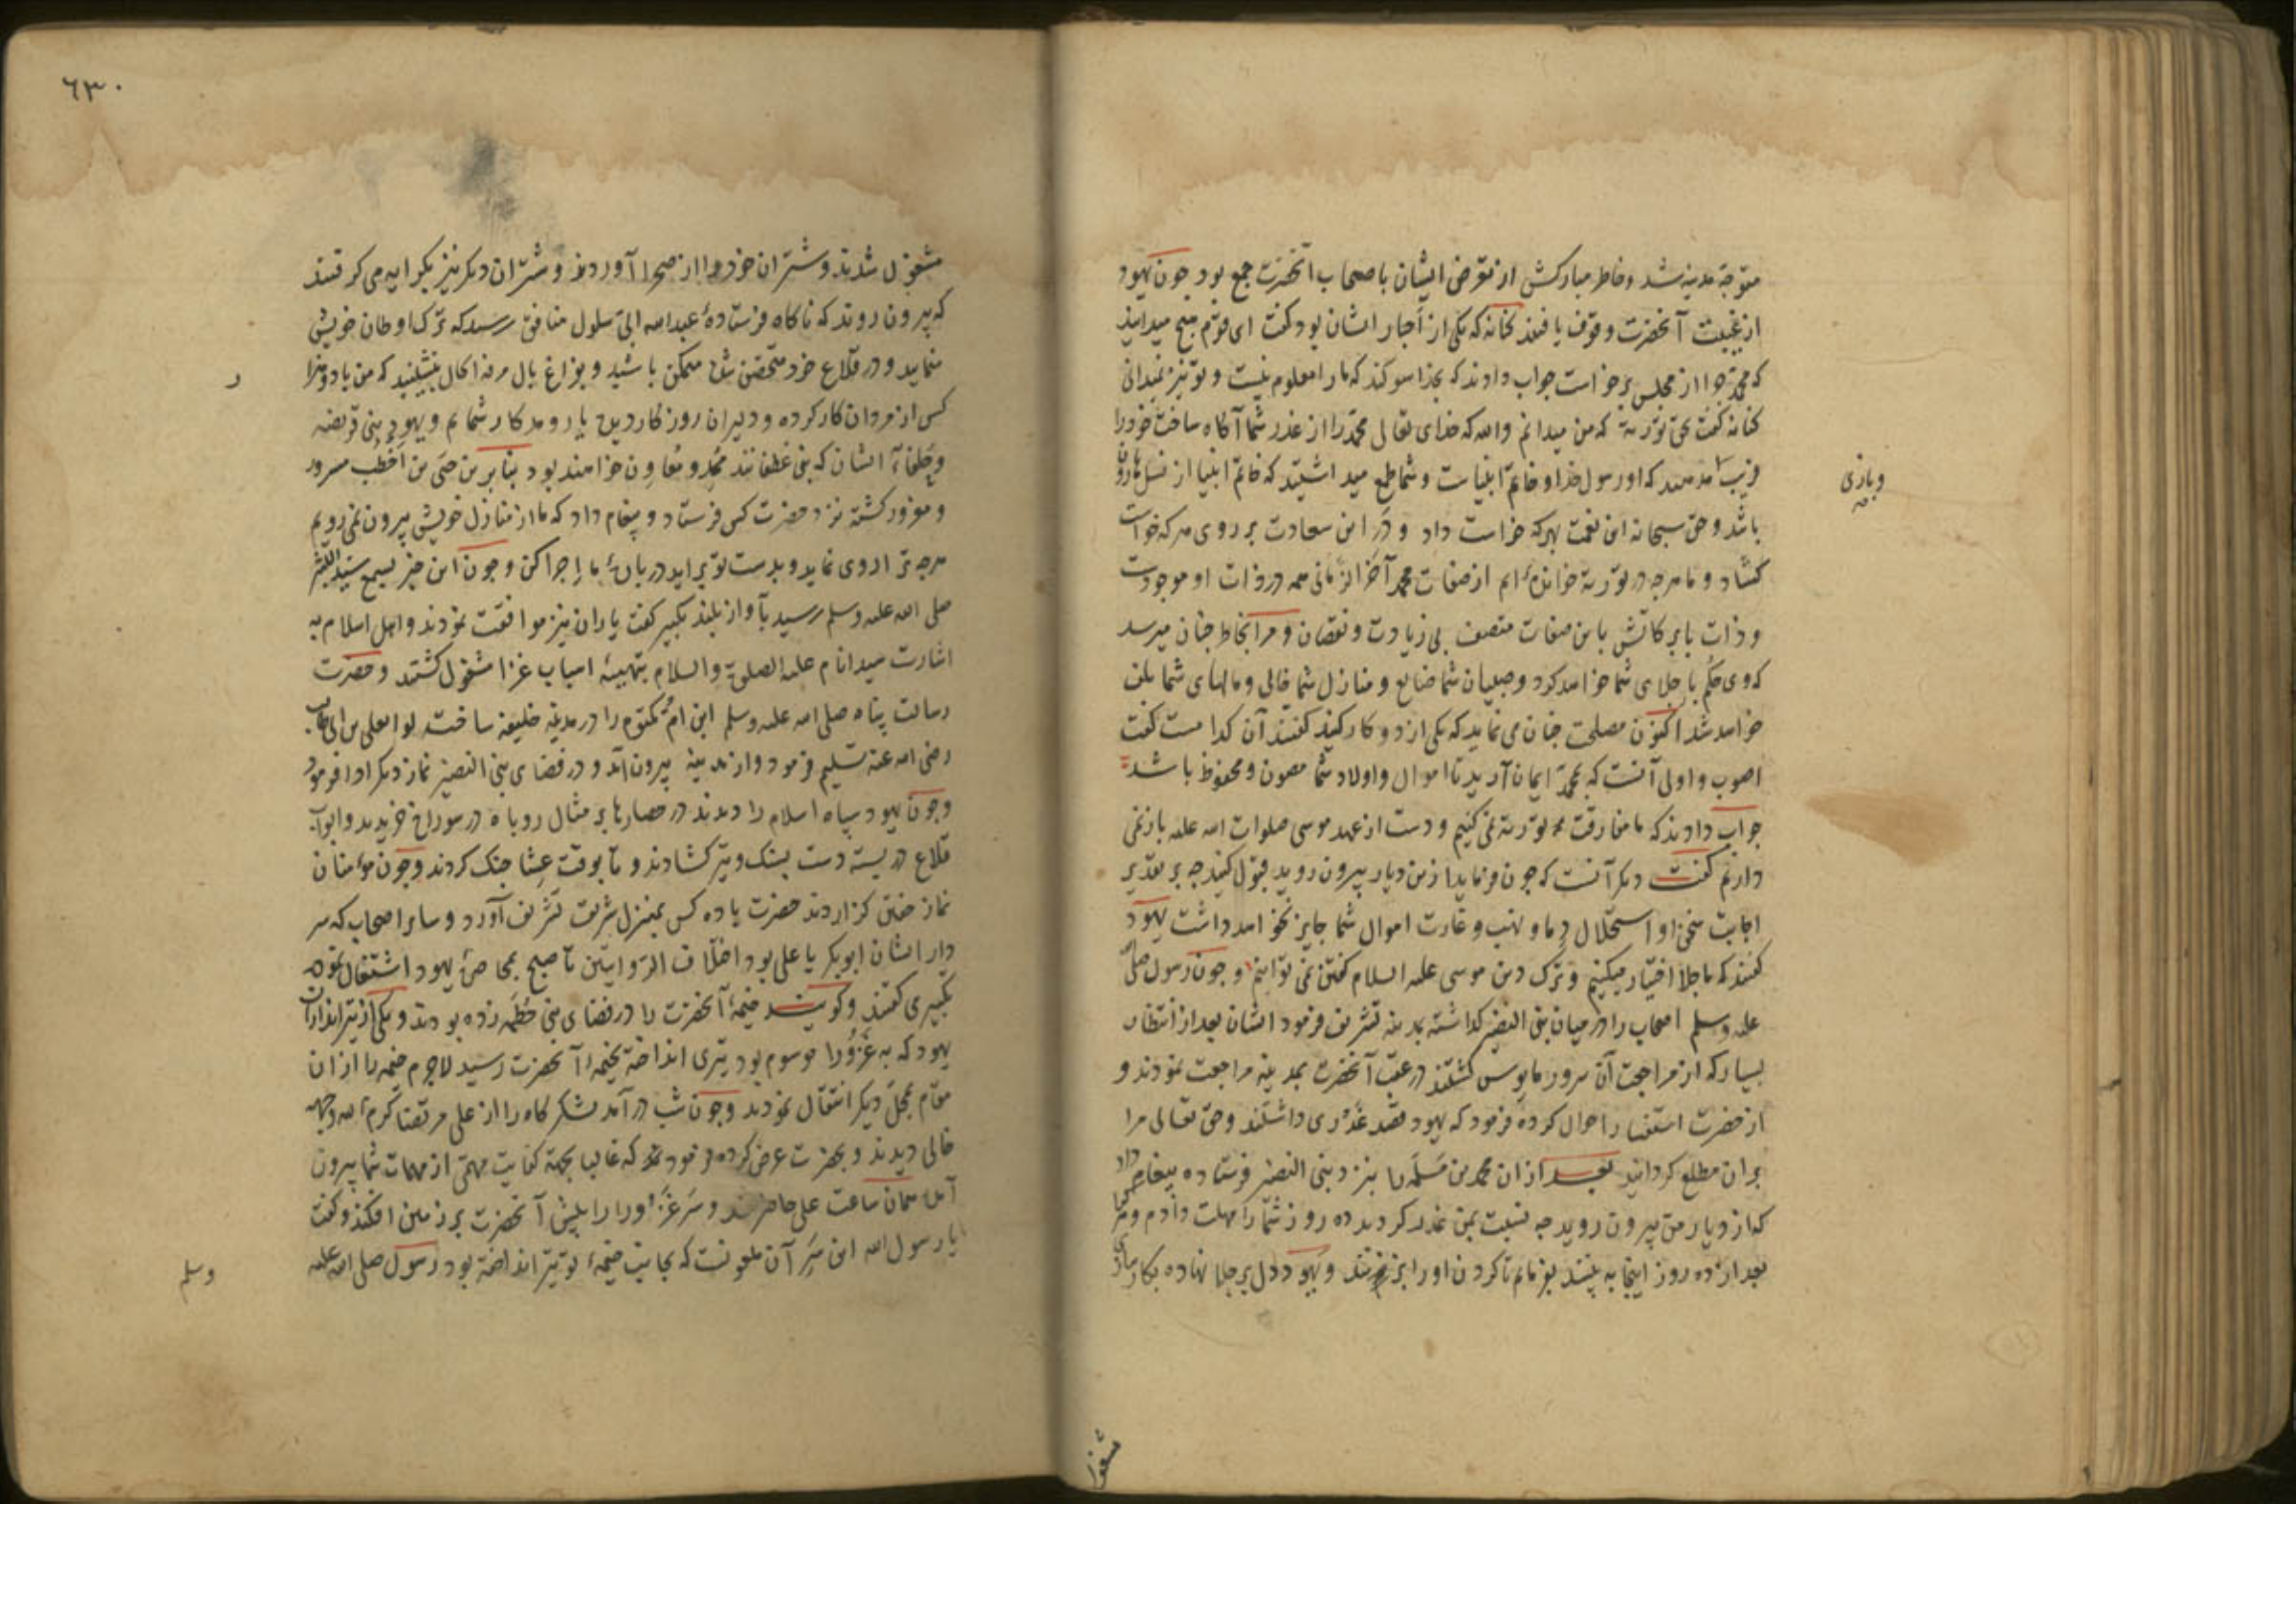 متوجه مدینه شد و خاطر مبارکش از تعرض ایشان باصحاب آنحضرت جمع بود چون یهود
از غیبت آنحضرت وقوف یافتند کنانه که یکی از احبار ایشان بود گفت ای قوم هیچ میدانید
که محمد چرا از مجلس برخواست جواب دادند که بخدا سوکند که ما را معلوم نیست و تو نیز نمیدانی
کنانه گفت بحق توریة که من میدانم والله که خدای تعالی محمد را از غدر شما آکاه ساخت خود را
فریب مدهید که او رسول خدا و خاتم انبیاست و شما طمع میداشتید که خاتم انبیا از نسل هارون
باشد و حق سبحانه این نعمت بهرکه خواست داد و در این سعادت بر روی هرکه خواست
کشاد و ما هرچه در توریة خوانده‌ایم از صفات محمد آخر الزمانی همه در ذات او موجودست
و ذات بابرکاتش باین صفات متصف بی زیادت و نقصان و مرا بخاطر چنان میرسد
که وی حکم با جلای شما خواهد کرد و صبیان شما ضایع و منازل شما خالی و مالهای شما تلف
خواهد شد اکنون مصلحت چنان می‌نماید که یکی از دو کار کنید کفتند آن کدامست کفت
اصوب و اولی آنست که بمحمد ایمان آرید تا اموال و اولاد شما مصون و محفوظ باشد
جواب دادند که ما مفارقت توریة نمی‌کنیم و دست از عهد موسی صلوات الله علیه باز نمی
داریم کفت دیکر آنست که چون فرماید از من دیار بیرون روید قبول کنید چه بر تقدیر
اجابت سخن او استحلال دما و نهب و غارت اموال شما جایز نخواهد داشت یهود
کفتند که ما جلا اختیار میکنیم و ترک دین موسی علیه السلام کفتن نمی‌توانیم و چون رسول صلی الله
علیه وسلم اصحاب را در میان بنی النضیر کداشته بمدینه تشریف فرمود ایشان بعد از انتظار
بسیار که از مراجعت آن سرور مایوس کشتند در عقب آنحضرت بمدینه مراجعت نمودند و
از حضرت استفسار احوال کرده فرمود که یهود قصد غدری داشتند و حق تعالی مرا
بران مطلع کردانید بعد ازان محمد بن مسلمه را بنزد بنی النضیر فرستاده پیغام داد
که از دیار من بیرون روید چه نسبت بمن غدر کردید ده روز شما را مهلت دادم و هرکرا
بعد از ده روز اینجا به بینند بفرمایم تا کردن او را بزنند و یهود دل بر جلا نهاده بکارسازی
وبازی
مشغول
٦٣٠
مشغول شدند و شتران خود را از صحرا آوردند و شتران دیکر نیز بکرایه می‌کرفتند
که بیرون روند که ناکاه فرستادهٔ عبدالله ابی سلول منافق رسید که ترک اوطان خویش
منمایید و در قلاع خود متحصن شده متمکن باشید و بفراغ بال مرفه الحال بنشینید که من با دو هزار
کس از مردان کار کرده و دلیران روز کار دیده یار و مددکار شمایم و یهود بنی قریضه
و خلفاء ایشان که بنی غطفانند ممد و معاون خواهند بود بنابرین حی بن اخطب مسرور
و مغرور کشته نزد حضرت کس فرستاد و پیغام داد که ما از منازل خویش بیرون نمی‌رویم
هرچه ترا روی نماید و بدست تو برآید دربارهٔ ما اجرا کن و چون این خبر بسمع سید البشر
صلی الله علیه وسلم رسید بآواز بلند تکبیر کفت یاران نیز موافقت نمودند و اهل اسلام به
اشارت سید انام علیه الصلوة والسلام بتهیئهٔ اسباب غزا مشغول کشتند و حضرت
رسالت پناه صلی الله علیه وسلم ابن ام مکتوم را در مدینه خلیفه ساخت لوا بعلی بن ابی طالب
رضی الله عنه تسلیم فرمود و از مدینه بیرون آمد و در فضای بنی النضیر نماز دیکر ادا فرمود
و چون یهود سپاه اسلام را دیدند در حصارها بر مثال روباه در سوراخ خزیدند و ابواب
قلاع در بسته دست بسنک و تیر کشادند و تا بوقت عشا جنک کردند و چون مؤمنان
نماز خفتن کزاردند حضرت با ده کس بمنزل شریف تشریف آورد و سایر اصحاب که سر
دار ایشان ابوبکر یا علی بود اختلاف الروایتین تا صبح بمحاصرهٔ یهود اشتغال نموده
تکبیر می‌کفتند و کویند خیمهٔ آنحضرت را در فضای بنی خطمه زده بودند و یکی از تیر اندازان
یهود که به غزورا موسوم بود تیری انداخته بخیمهٔ آنحضرت رسید لاجرم خیمه را از ان
مقام بمحل دیکر انتقال نمودند و چون شب درآمد لشکرکاه را از علی مرتضا کرم الله وجهه
خالی دیدند و بحضرت عرض کرده فرمود که غالبا بجهة کفایت مهمی از مهمات شما بیرون
آمده همان ساعت علی حاضر شد و سر غزورا را بپیش آنحضرت بر زمین افکند و کفت
یا رسول الله این سر آن ملعونست که بجانب خیمهٔ تو تیر انداخته بود رسول صلی الله علیه
وسلم